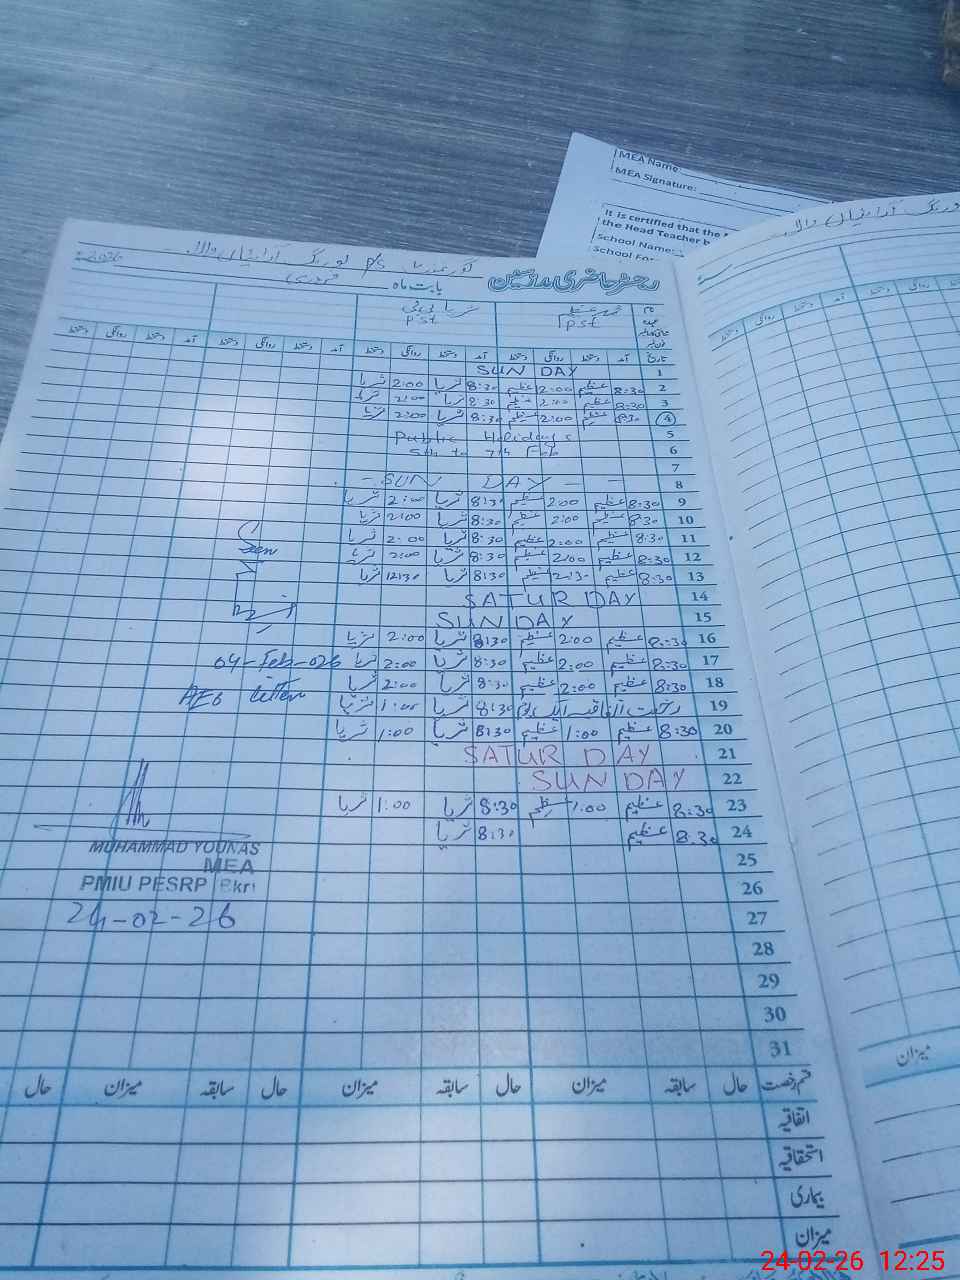 MEA Name:
MEA Signature:
It is certified that the
the Head Teacher b
School Name:
رجسٹر حاضری مدرسین
گورنمنٹ P/S
بابت ماہ فروری 2026
PST PST
تاریخ آمد دستخط روانگی دستخط آمد دستخط روانگی دستخط آمد دستخط روانگی دستخط آمد دستخط روانگی دستخط
1 SUN DAY
2 8:30 عظیم 2:00 عظیم 8:30 ثریا 2:00 ثریا
3 8:30 عظیم 2:00 عظیم 8:30 ثریا 2:00 ثریا
4 8:30 عظیم 2:00 عظیم 8:30 ثریا 2:00 ثریا
5 Public Holidays
6 5th to 7th Feb
7
8 - SUN DAY - -
9 8:30 عظیم 2:00 عظیم 8:30 ثریا 2:00 ثریا
10 8:30 عظیم 2:00 عظیم 8:30 ثریا 2:00 ثریا
11 8:30 عظیم 2:00 عظیم 8:30 ثریا 2:00 ثریا
12 8:30 عظیم 2:00 عظیم 8:30 ثریا 2:00 ثریا
13 8:30 عظیم عظیم 8:30 ثریا 12:30 ثریا
14 SATUR DAY
15 SUN DAY
16 8:30 عظیم 2:00 عظیم 8:30 ثریا 2:00 ثریا
17 8:30 عظیم 2:00 عظیم 8:30 ثریا 2:00 ثریا
18 8:30 عظیم 2:00 عظیم 8:30 ثریا 2:00 ثریا
19 رخصت 8:30 ثریا 1:00 ثریا
20 8:30 عظیم 1:00 عظیم 8:30 ثریا 1:00 ثریا
21 SATUR DAY
22 SUN DAY
23 8:30 عظیم 1:00 عظیم 8:30 ثریا 1:00 ثریا
24 8:30 عظیم 8:30 ثریا
25
26
27
28
29
30
31
Seen
04-Feb-026
MUHAMMAD YOUNAS
MEA
PMIU PESRP Bkr
24-02-26
قسم رخصت حال سابقہ میزان حال سابقہ میزان حال سابقہ میزان حال
اتفاقیہ
استحقاقیہ
بیماری
میزان
میزان
24-02-26 12:25